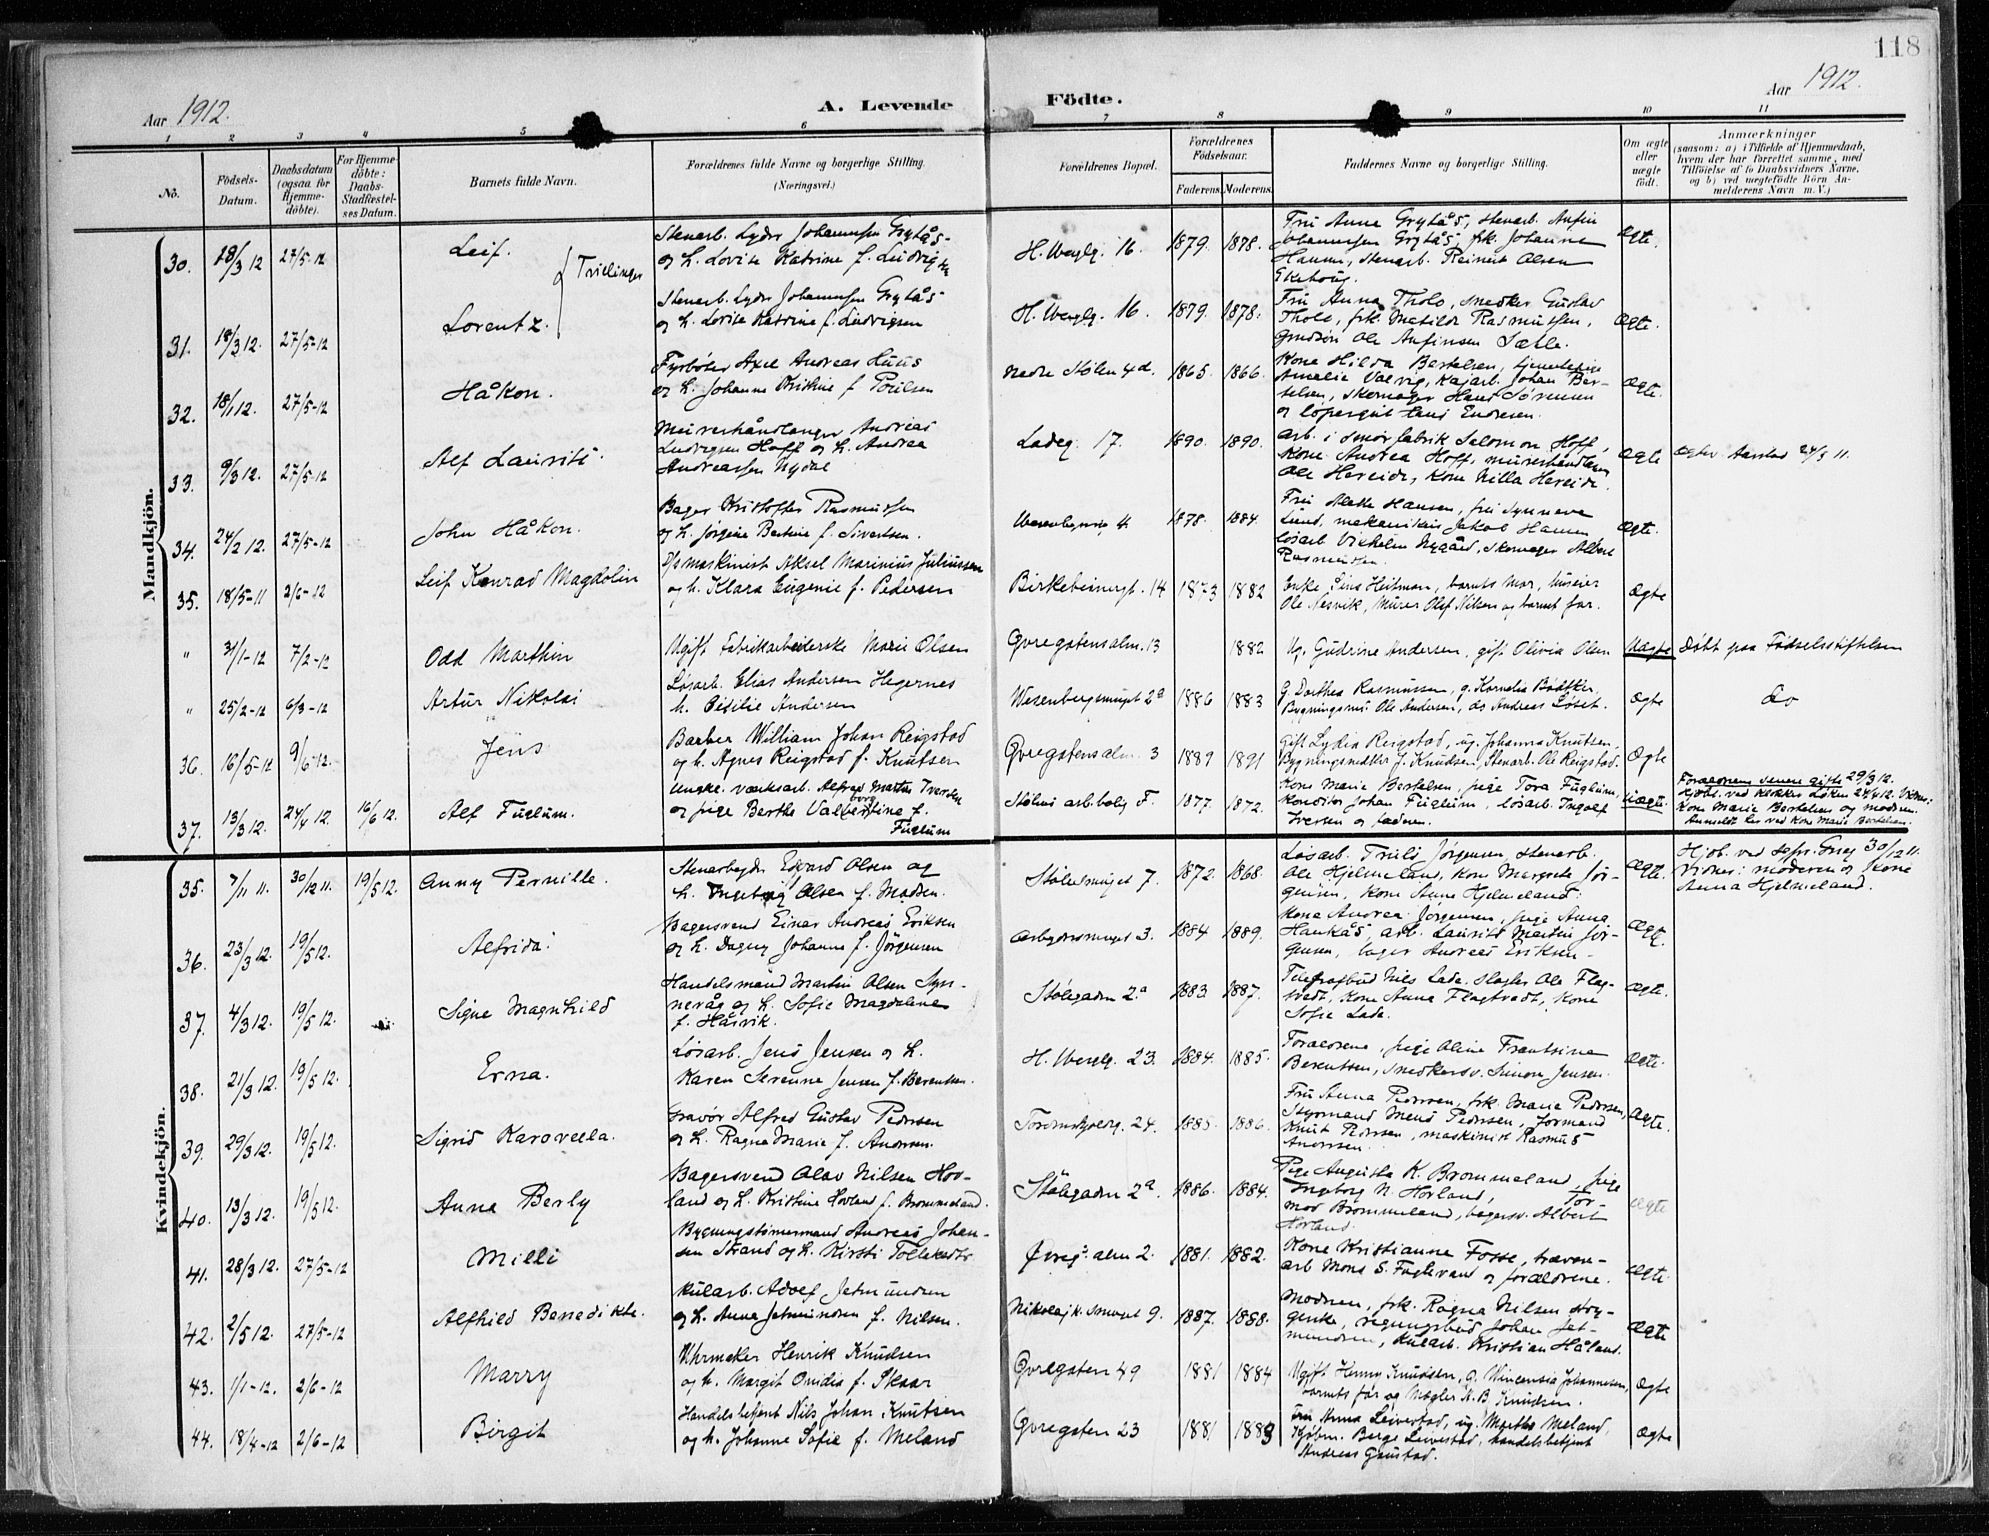 118
Aar 1912.
A. Levende Födte.
Aar 1912.
1 2 3 4 5 6 7 8 9 10 11
No.
Födsels-Datum.
Daabsdatum (ogsaa for Hjemme-döbte).
For Hjemme-döbte: Daabs-Stadfæstel-ses Datum.
Barnets fulde Navn.
Forældrenes fulde Navne og borgerlige Stilling.
(Næringsvei.)
Forældrenes Bopæl.
Forældrenes Födselsaar.
Faderens. Moderens.
Faddernes Navne og borgerlige Stilling.
Om ægte eller uægte födt.
Anmærkninger
(saasom: a) i Tilfælde af Hjemmedaab,
hvem der har forrettet samme, med
Tilföielse af to Daabsvidners Navne,
og b) ved uægtefödte Börn An-
melderens Navn m. V.)
Mandkjön.
30. 18/3 12 27/5-12 Leif. } Trillinger
Stenarb. Lyder Johannesen Grytås
og h. Lovise Katrine f. Ludvigsen
H. Werglg. 16. 1879. 1878.
Fru Anna Grytås, stenarb. Anfin
Johannesen Grytås, frk. Johanne
Hansen, stenarb. Reinert Olsen
Ægte.
31. 18/3 12. 27/5-12 Lorentz.
Stenarb. Lyder Johannesen Grytås
og h. Lovise Katrine f. Ludvigsen
H. Werglg. 16. 1879. 1878.
Fru Anna Thole, snedker Gustav
Thole, frk. Matilde Rasmussen,
Ole Anfinsen Sætle.
Ægte.
32. 18/1 12. 27/5-12 Håkon.
Fyrböter Axel Andreas Huus
og h. Johanne Kristine f. Poulsen
Nedre Stölen 4d. 1865. 1866.
Kone Hilda Bertelsen, tjenestepige
Amalie Valvig, kajarb. Johan Ber-
telsen, skomager Hans Sörensen
og löpergut Hans Endresen.
Ægte.
33. 9/3 12. 27/5-12 Alf Laurits.
Murerhåndlanger Andreas
Ludvigsen Hoff og h. Andrea
Andreassen Nydal
Ladeg. 17. 1890. 1890.
Arb. i smörfabrik Salomon Hoff,
kone Andrea Hoff, murerhåndlanger
Ole Hereide, kone Nilla Hereide.
Ægte
Ægtev. Aarstad 24/3 11.
34. 24/2 12. 27/5-12 John Håkon.
Bager Kristoffer Rasmussen
og h. Jörgine Bertine f. Sivertsen.
Wesenbgsmg 4. 1878. 1884.
Fru Hansen, fru Synneve
Lund, mekanikus Jakob Hansen
lösarb. Vilhelm Nygård, skomager Albert
Rasmussen.
Ægte.
35. 18/5-11 2/6-12 Leif Konrad Magdolin
D/s maskinist Aksel Marinius Juliussen
og h. Klara Eugenie f. Pedersen
Birkebeinergt. 14 1873 1882
Enke Lina Heitman, barnets mor,
Ole Nesvik, Murer Olef Nilsen og barnets far.
Ægte
" 31/1-12 7/2-12 Odd Marthin
Ugift Fabrikarbeiderske Marie Olsen
Øvregatensalm. 13 1882
Ug. Gudrine Andersen, gift Olivia Olsen
Uægte
Döbt paa Födselsstiftelsen
" 25/2-12 6/3-12 Artur Nikolai
Lösarb. Elias Andersen Hegernes
h. Cicilie Andersen
Wesenbergsmuget 2a 1886 1883
G. Dorthea Rasmussen, g. Kornelia Bödtker.
Bygningsms Ole Andersen, ds Andreas Löset.
Ægte
do
36. 16/5-12 9/6-12. Jens
Barber William Johan Reigstad
og h. Agnes Reigstad f. Knutsen
Øvregatensalm. 3 1889 1891
Gift Lydia Reigstad, ug. Johanna Knutsen,
Bygningssnedker J. Knudsen, Stenarb. Ole Reigstad.
Ægte
37. 13/3 12. 24/4 12. 16/6 12. Alf Fuglum.
Ungkr. værksarb. Alfred Martin Iversen
og pige Berthe Valborg f.
Fuglum
Stölens arb.bolig F. 1877. 1872.
Kone Marie Bertelsen, pige Tora Fuglum,
Konditor Johan Fuglum, lösarb. Ingolf
Iversen og faderen.
Uægte.
Forældrene senere gifte 29/3 12.
Hjdöbt. ved klokker Löken 24/4 12. Vidner:
Kone Marie Bertelsen og modren.
Anmeldt her ved Kone Marie Bertelsen.
Kvindekjön.
35. 7/11 11. 30/12 11. 19/5 12. Anny Pernille.
Stenarbeyder Edvard Olsen og
h. Ingeborg Olsen f. Madsen.
Stölesmuget 7. 1872. 1868.
Lösarb. Truls Jörgensen, stenarb.
Ole Hjelmeland, kone Margrete Jör-
gensen, kone Anna Hjelmeland:
Ægte.
Hjdb. ved sepr. Greg 30/12 11.
Vidner: moderen og kone
Anna Hjelmeland.
36. 23/3 12. 19/5 12. Alfrida.
Bagersvend Einar Andreas Eriksen
og h. Dagny Johanne f. Jörgensen
Arbydersmuget 3. 1884 1889.
Kone Andrea Jörgensen, pige Anna
Haukås, arb. Laurits Martin Jör-
gensen, bager Andreas Eriksen.
Ægte.
37. 4/3 12. 19/5 12. Signe Magnhild
Handelsmand Martin Olsen Syn-
nevåg og h. Sofie Magdalene
f. Håsvik.
Stölegaden 2a 1883. 1887.
Telegrafbud Nils Lade, slagter Ole Flag-
tvedt, kone Anna Flagtvedt, kone
Sofie Lade.
Ægte.
38. 21/3 12. 19/5 12. Erna.
Lösarb. Jens Jensen og h.
Karen Serenne Jensen f. Berentsen.
H. Werglg. 23. 1884. 1885.
Forældrene, pige Oline Frantsine
Berentsen, snedkersv. Simon Jensen.
Ægte.
39. 29/3 12. 19/5 12. Sigrid Karovella.
Gravör Alfred Gustav Pedersen
og h. Ragna Marie f. Andersen.
Tordenskjoldsg. 24. 1885. 1886.
Fru Anna Pedersen, frk. Marie Pedersen,
Styrmand Mens Pedersen, Formand
Knut Pedersen, maskinist Rasmus
Andersen.
Ægte.
40. 13/3 12. 19/5 12. Anna Berly
Bagersvend Olav Nilsen Hov-
land og h. Kristine Hovland f. Brommeland.
Stölegaden 2a. 1886. 1884.
Pige Augusta K. Brommeland, pige
Ingeborg N. Hovland, Tor-
mod Brommeland, bagersv. Albert
Hovland.
Ægte
41. 28/3 12. 27/5-12 Milli
Bygningstömmermand Andreas Johan-
sen Strand og h. Kirsti Tollefsdtr
Øvregs. alm 2. 1881. 1882.
Kone Kristianne Fosse, trævare-
arb Mons S. Fuglevand og forældrene.
Ægte.
42. 2/5 12. 27/5-12 Alfhild Benedikte.
Kularb. Adolf Jetmundsen
og h. Anna Jetmundsen f. Nilsen.
Nikolajk. smuget 9. 1887. 1888.
Modren, frk. Ragna Nilsen
regningsbud Johan Jet-
mundsen, kularb. Kristian Håland.
Ægte
43. 1/1-12. 2/6-12 Marry
Uhrmaker Henrik Knudsen
og h. Margit Ovidia f. Skaar
Øvregaten 49 1881 1884
Ugift Henny Knudsen, g. Wincensia Johannesen,
barnets far og Nægler K. B. Knudsen.
Ægte
44. 18/4-12 2/6-12 Birgit
Handelsbetjent Nils Johan Knutsen
og h. Johanne Sofie f. Meland
Øvregaten 23 1881 1883
Fru Anna Leivestad, ug. Martha Meland,
Kjöbm. Berge Leivestad, handelsbetjent
Andreas Gaustad.
Ægte